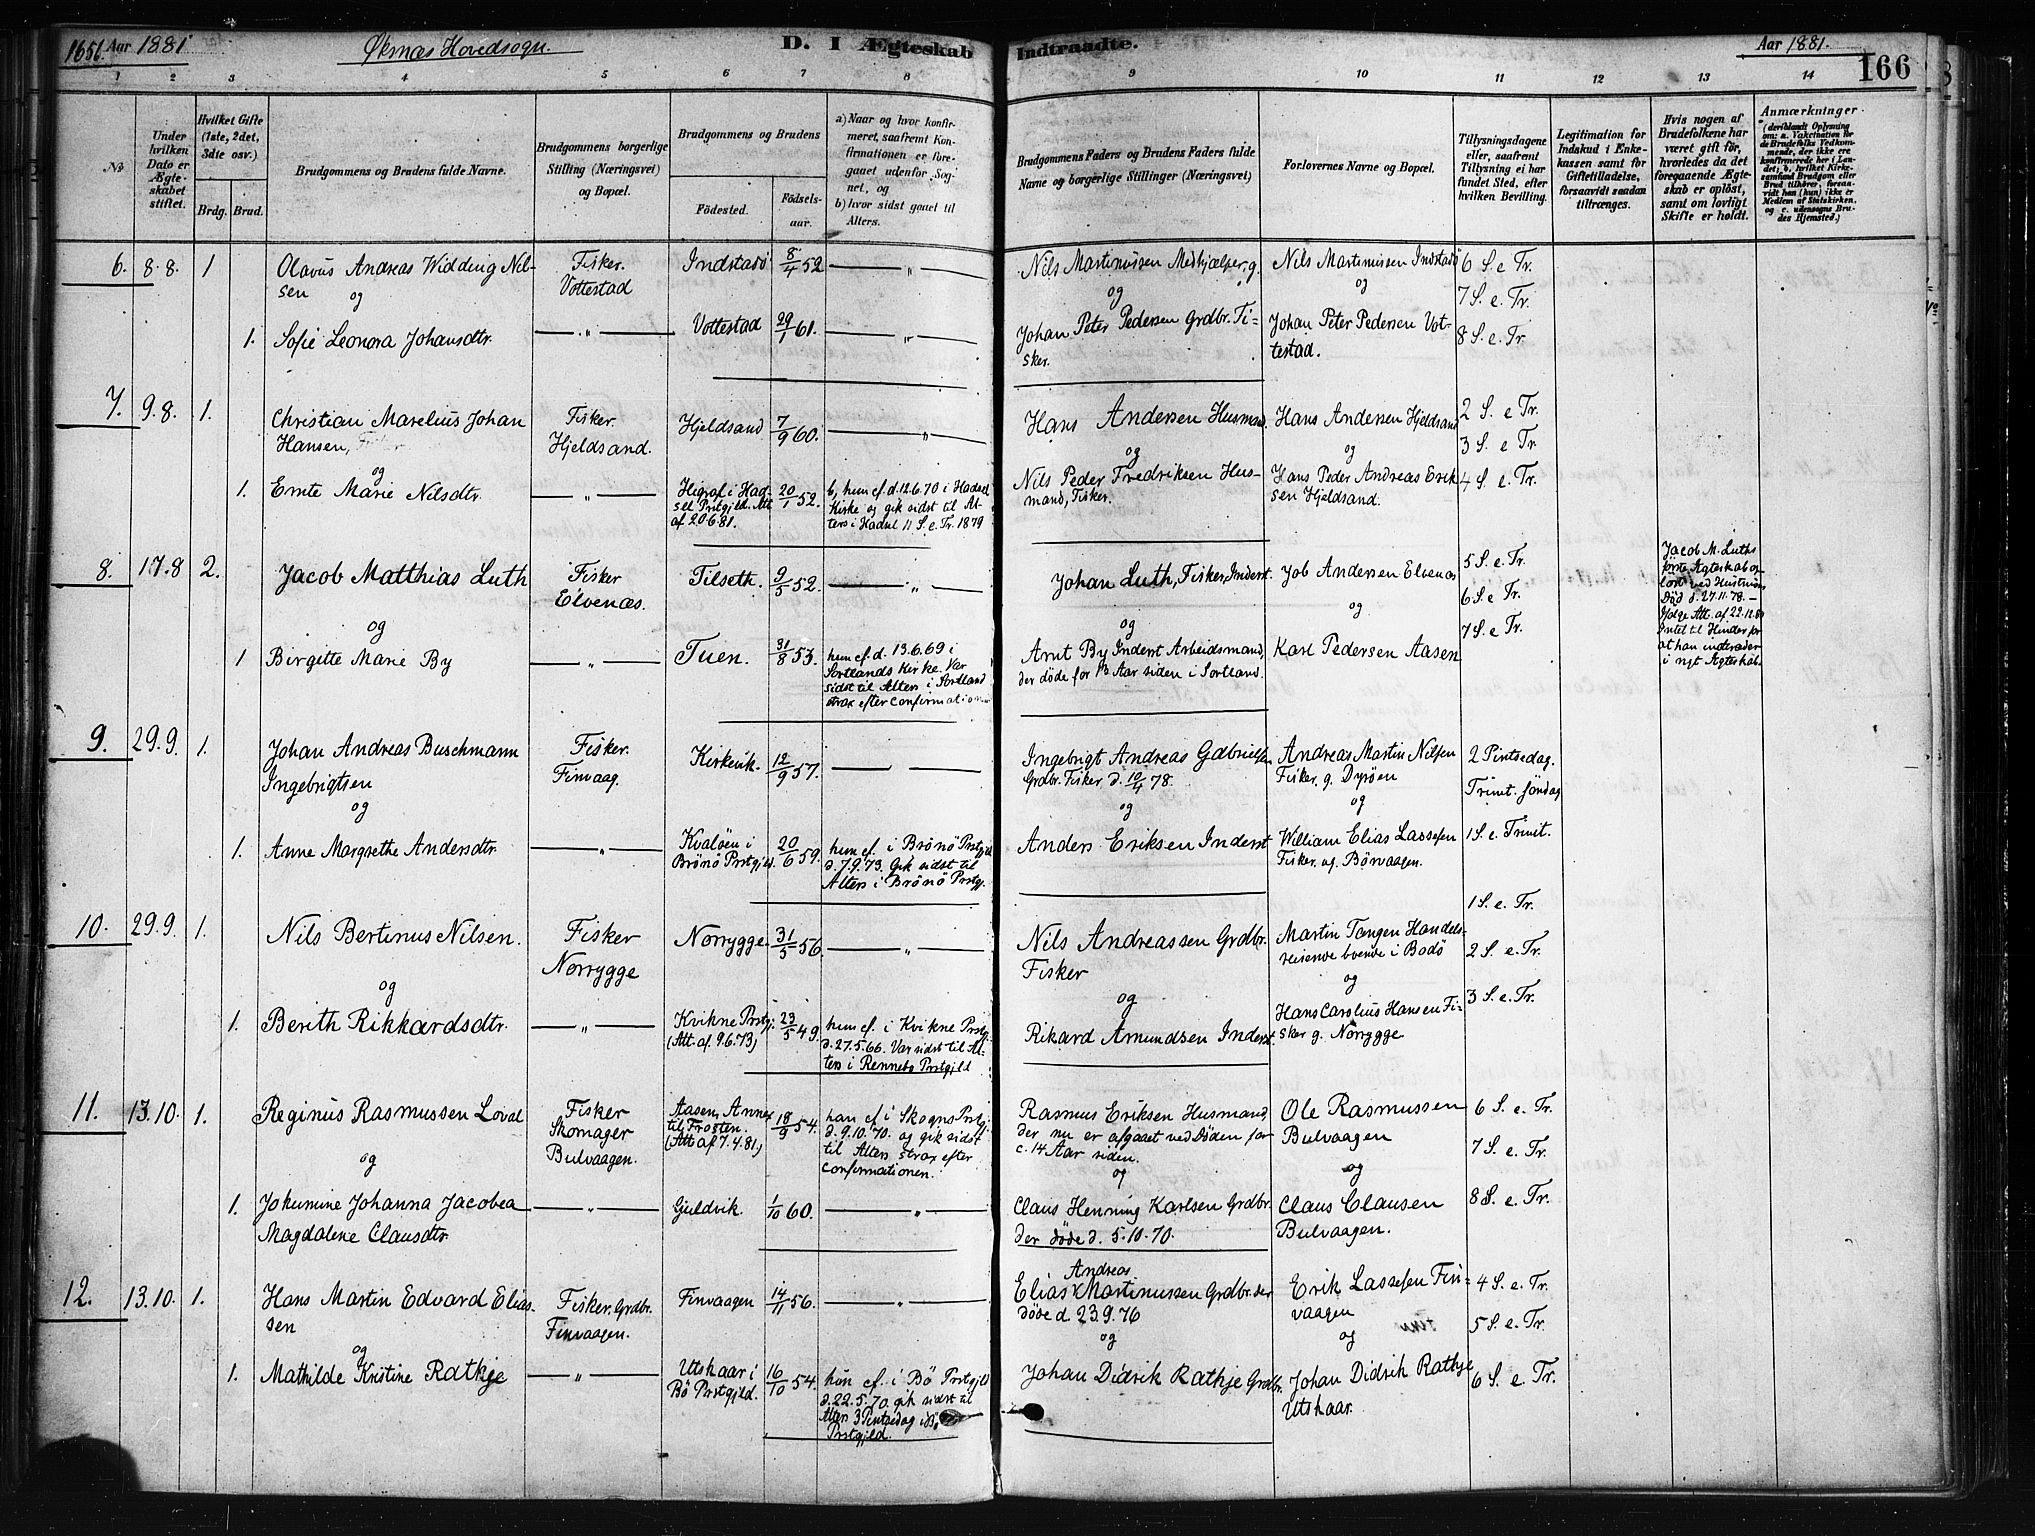 165b. Aar 1881 Øksnæs Hovedsogn. D. I Ægteskab Indtraadte. Aar 1881. 166
1 2 3 4 5 6 7 8 9 10 11 12 13 14
No.
Under hvilken Dato er Ægteskabet stiftet.
Hvilket Gifte (1ste, 2det, 3dte osv.)
Brdg. Brud.
Brudgommens og Brudens fulde Navne.
Brudgommens borgerlige Stilling (Næringsvei) og Bopæl.
Brudgommens og Brudens
Fødested. Fødselsaar.
a) Naar og hvor konfirmeret, saafremt Konfirmationen er foregaaet udenfor Sognet, og
b) hvor sidst gaaet til Alters.
Brudgommens Faders og Brudens Faders fulde Navne og borgerlige Stillinger (Næringsvei)
Forlovernes Navne og Bopæl.
Tillysningsdagene eller, saafremt Tillysning ei har fundet Sted, efter hvilken Bevilling.
Legitimation for Indskud i Enkekassen samt for Giftetilladelse, forsaavidt saadan tiltrænges.
Hvis nogen af Brudefolkene har været gift før, hvorledes da det foregaaende Ægteskab er opløst, samt om lovligt Skifte er holdt.
Anmærkninger
6. 8.8. 1 Olavus Andreas Widding Nilsen Fisker. Vottestad Indstadø 8/4 52 — „ — Nils Martinussen Medhjælper, g. Nils Martinussen Indstadø 6 S. e Tr.
og og og 7 S. e. Tr.
1. Sofie Leonora Johansdtr. — „ — Vottestad 29/1 61. — „ — Johan Peter Pedersen Grdbr. Fisker. Johan Peter Pedersen Vottestad. 8 S. e. Tr.
7. 9.8. 1. Christian Marelius Johan Hansen, Fisker. Hjeldsand. Hjeldsand 7/9 60. — „ — Hans Andersen Husmand. Hans Andersen Hjeldsand 2 S. e Tr.
og og og 3 S. e Tr.
1. Emte Marie Nilsdtr. — „ — Higraf i Hadsel Prstgjld. Att. af 20.6.81. 20/1 52. b, hun cf. d. 12.6.70 i Hadsel Kirke og gik sidst til Alters i Hadsel 11 S. e. Tr. 1879 Nils Peder Fredriksen Husmand, Fisker. Hans Peder Andreas Eriksen Hjeldsand. 4 S. e. Tr.
8. 17.8 2. Jacob Matthias Luth Fisker Elvenæs. Tilseth. 9/5 52. — „ — Johan Luth, Fisker, Inderst Job Andersen Elvenæs 5 S. e. Tr. Jacob M. Luths første Ægteskab opløst ved Hustruens Død d. 27.11.78. — Ifølge Att. af 22.12.80 Intet til Hinder for at han indtræder i nyt Ægteskab.
og og og 6 S. e Tr.
1 Birgitte Marie By — „ — Tuen. 31/8 53. hun cf. d. 13.6.69 i Sortlands Kirke. Var sidst til Alters i Sortland strax efter confirmationen Arnt By Inderst Arbeidsmand, der døde for 13 Aar siden i Sortland. Karl Pedersen Aasen 7 S. e Tr.
9. 29.9. 1. Johan Andreas Buschmann Ingebrigtsen Fisker. Finvaag. Kirkevik. 12/9 57. — — Ingebrigt Andreas Gabrielsen Grdbr. Fisker d. 10/4 78. Andreas Martin Nilsen Fisker, g. Dyrøen 2 Pintsedag.
og og og Trinit. Søndag
1. Anne Margrethe Andersdtr. — „ — Kvaløen i Brønø Prstgjld. 20/6 59. hun cf. i Brønø Prstgjld d. 7.9.73. Gik sidst til Alters i Brønø Prstgj. Anders Eriksen Inderst William Elias Lassesen Fisker, og Børvaagen. 1 S. e. Trinit.
10. 29.9. 1. Nils Bertinus Nilsen. Fisker Norrygge Norrygge 31/3 56. — „ — Nils Andreassen Grdbr. Fisker Martin Tangen Handelsreisende boende i Bodø 1 S. e. Tr.
og og og 2 S. e. Tr.
1. Berith Rikkardsdtr. — „ — Kvikne Prstgj. (Att. af. 9.6.73) 23/5 49. hun cf. i Kvikne Prstgj. d. 27.5.66. Var sidst til Alters i Rennebo Prstgjld Rikard Amundsen Inderst. Hans Carolius Hansen Fisker g. Norrygge 3 S. e. Tr.
11. 13.10. 1. Reginus Rasmussen Loval Fisker Skomager Bulvaagen. Aasen, Annex til Frosten. (Att af 7.4.81.) 18/9 54. han cf. i Skogns Prstgj. d. 9.10.70. og gik sidst til Alters strax efter confirmationen. Rasmus Eriksen Husmand, der nu er afgaaet ved Døden for c. 14 Aar siden. Ole Rasmussen Bulvaagen 6 S. e. Tr.
og og og 7 S. e. Tr.
1. Jokumine Johanna Jacobea Magdalene Clausdtr. — „ — Guldvik. 1/10 60. — „ — Claus Henning Karlsen Grdbr. der døde d. 5.10.70. Claus Clausen Bulvaagen. 8 S. e. Tr.
12. 13.10. 1. Hans Martin Edvard Eliassen Fisker, Grdbr. Finvaagen. Finvaagen 14/11 56. — „ — Elias Andreas Martinussen Grdbr. der døde d. 23.9.76 Erik Lassesen Finvaagen 4 S. e. Tr.
og og og 5 S. e. Tr.
1. Mathilde Kristine Ratkje — „ — Utskaar i Bø Prstgjld. 16/10 54. hun cf. i Bø Prstgjld d. 22.5.70. gik sidst til Alters 3 Pintsedag i Bø Prstgjld. Johan Didrik Rathje Grdbr. Johan Didrik Rathje Utskaar. 6 S. e. Tr.